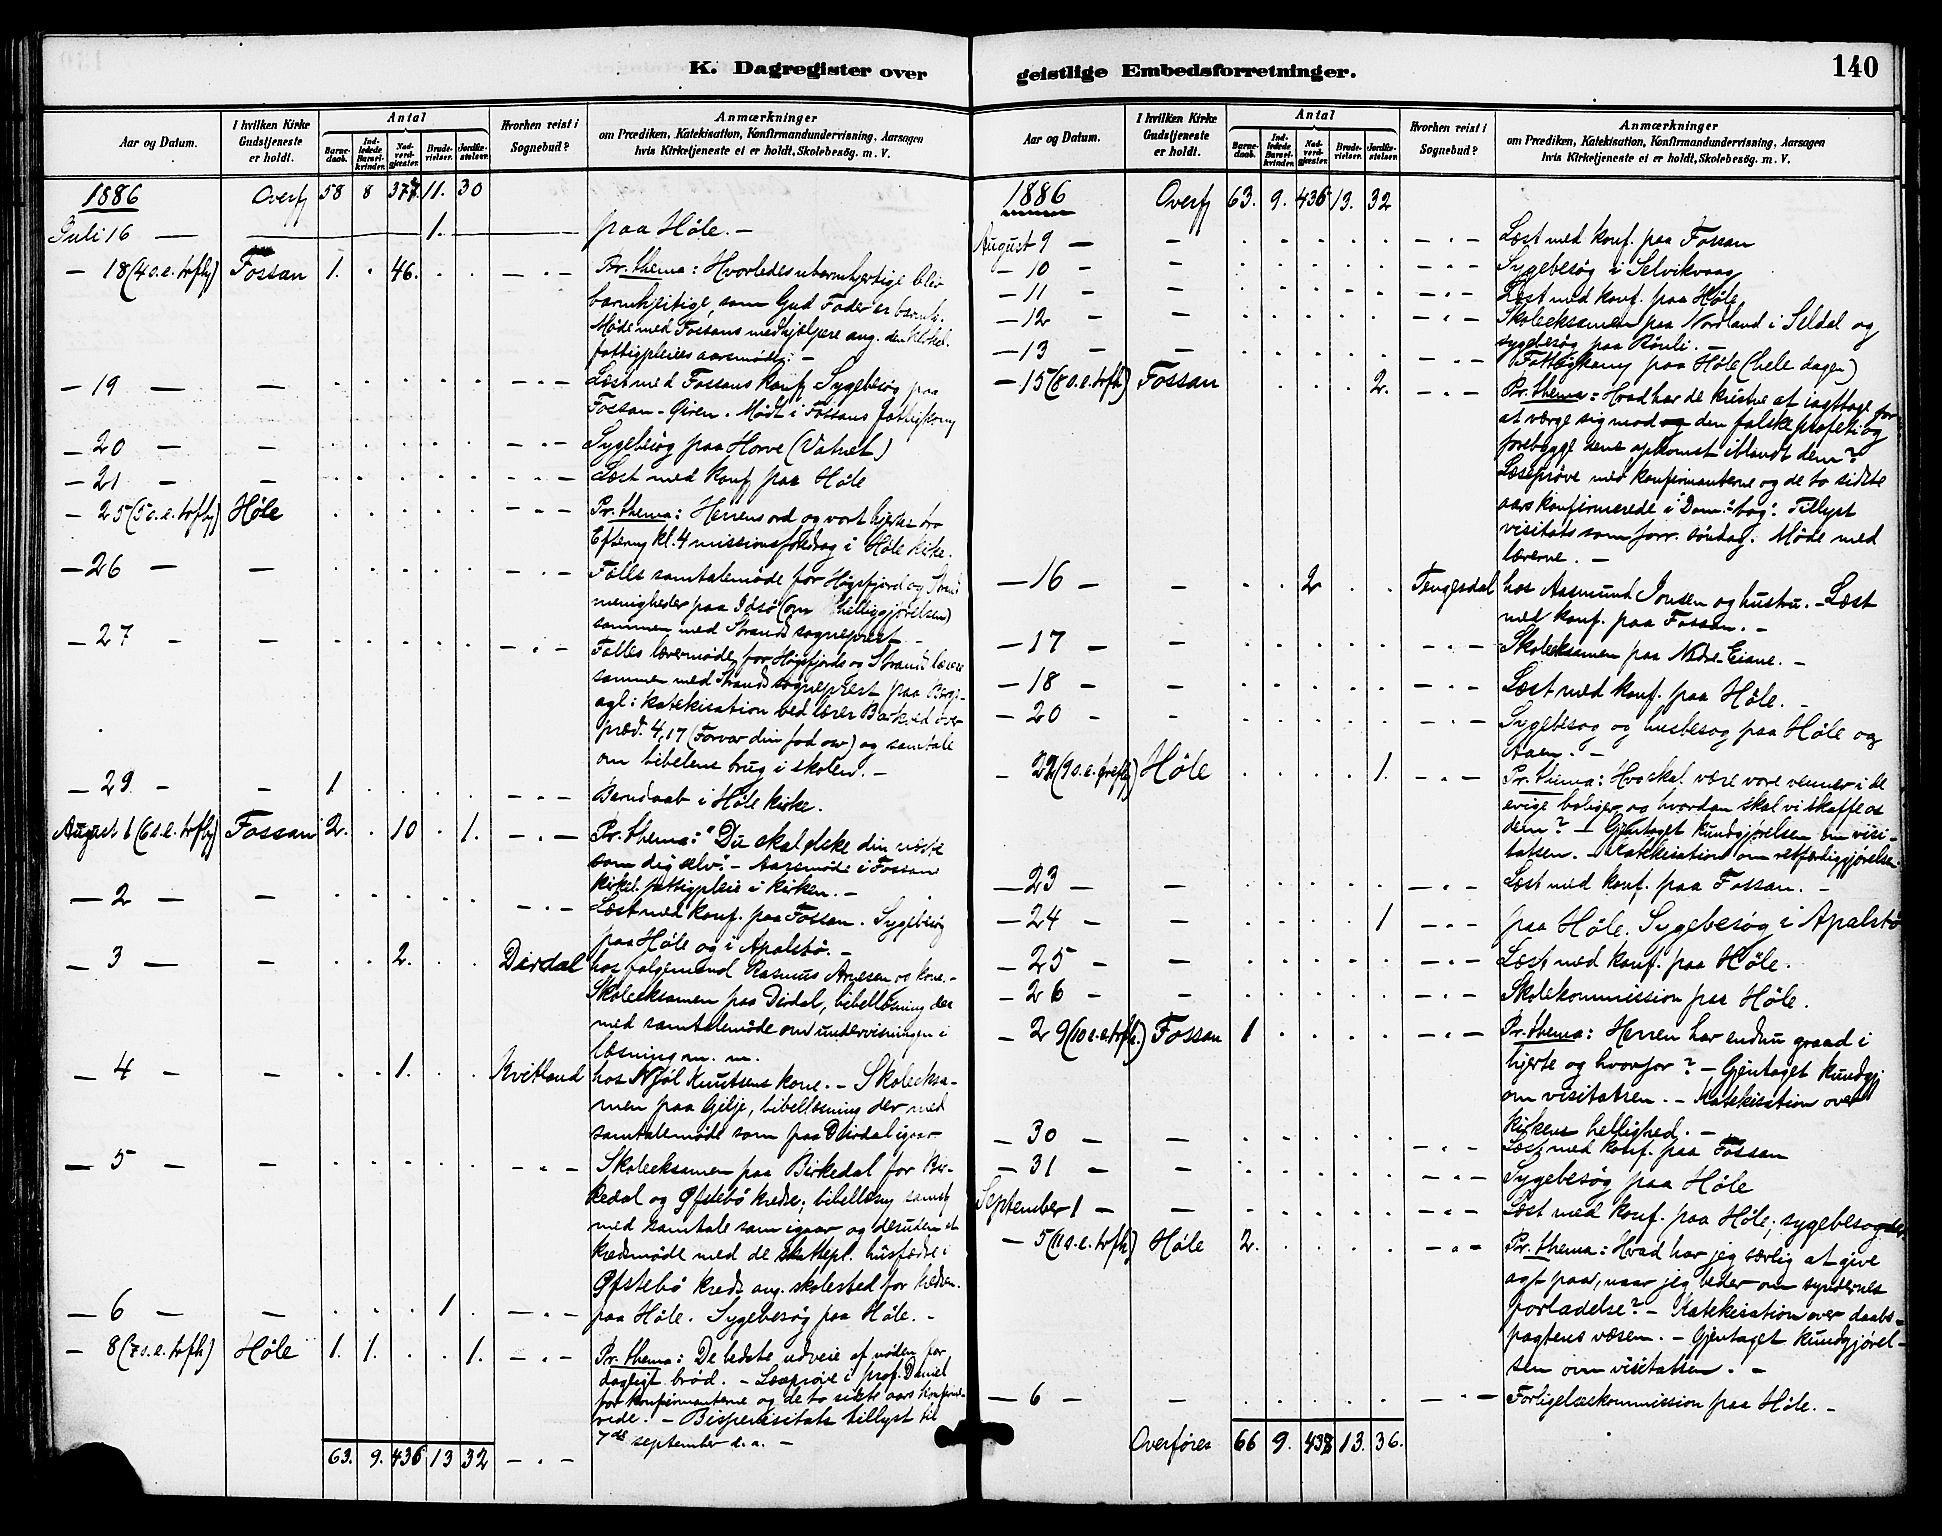 K. Dagregister over
geistlige Embedsforretninger.
140
Aar og Datum.
I hvilken Kirke Gudstjeneste er holdt.
Antal
Barnedaab.
Indledede Barselkvinder.
Nadverdgjæster.
Brudevielser.
Jordfæstelser.
Hvorhen reist i Sognebud?
Anmærkninger
om Prædiken, Katekisation, Konfirmandundervisning, Aarsagen
hvis Kirketjeneste ei er holdt, Skolebesøg. m. V.
1886 Overf 58 8 377. 11. 30
Juli 16 — 1. paa Høle. —
— 18 (4 s. e. trefh) Fossan 1. . 46. . . — . — Pr. thema: Hvorledes ubarmhjertige blir
barmhjertige, som Gud Fader er barmh.
Møde med Fossans medhjælpere ang. den kirkel.
fattigpleies aarsmøde. —
— 19 — — . . . . . — . — Læst med Fossans konf. Sygebesøg paa
Fossan - Giren. Mødt i Fossans fattigkomm
— 20 — — . . . . . — . — Sygebesøg paa Horve (Vatnet)
— 21 — — . . . . . — . — Læst med konf paa Høle
— 25 (5 s. e. trefh) Høle . . . . . — . — Pr. thema: Herrens ord og vort hjertes tro
Efterm kl. 4 missionsforedrag i Høle kirke.
— 26 — — . . . . . — . — Fælles samtalemøde for Høgsfjord og Strand
menigheder paa Idsø (om helliggjørelsen)
sammen med Strands sogneprest —
— 27 — — . . . . . — . — Fælles lærermøde for Høgsfjords og Strands lærere
sammen med Strands sogneprest paa
katekisation ved lærer Barkved over
præd. 4,17 (Forvar din fod osv) og samtale
om bibelens brug i skolen. —
— 29. — — 1 . . . . — . — Barnedaab i Høle kirke.
August 1 (6 s. e. trefh) Fossan 2. . 10 . 1. — . — Pr. thema: "Du skal elske din næste
som dig selv". — Aarsmøde i Fossan
kirkel. fattigpleie i kirken. —
— 2 — — . . . . . — . — Læst med konf. paa Fossan. Sygebesøg
paa Høle og i Apalstø. —
— 3 — — . . 2. . . Dirdal hos folgemand Rasmus Arnesen og kone. —
Skoleeksamen paa Dirdal, bibellæsning der
med samtalemøde om undervisningen i
læsning m. m.
— 4 — — . . 1. . . Kvitland hos Njøl Knutsens kone. — Skoleeksa-
men paa Gilje, bibellæsning der med
samtalemøde som paa Dirdal igaar
— 5 — — . . . . . — . — Skoleeksamen paa Birkedal for Bir-
kedal og Øfstebø kredse; bibellæsn samt
med samtale som igaar og desuden et
kredsmøde med de husfædre i
Øfstebø kreds ang. skolested for kredsen.
— 6 — — . . . 1 . — . — paa Høle. Sygebesøg paa Høle. —
— 8 (7 s. e. trefh) Høle 1. 1. . . 1. — . — Pr. thema: De bedste udveie af nøden for
dagligt brød. — Læseprøve i prof. Daniel
for konfirmanterne og de to sidste aars konfirme-
rede. — Bispevisitats tillyst til
7de september d. a. —
63. 9. 436 13 32 — . —
Aar og Datum.
I hvilken Kirke Gudstjeneste er holdt.
Antal
Barnedaab.
Indledede Barselkvinder.
Nadverdgjæster.
Brudevielser.
Jordfæstelser.
Hvorhen reist i Sognebud?
Anmærkninger
om Prædiken, Katekisation, Konfirmandundervisning, Aarsagen
hvis Kirketjeneste ei er holdt, Skolebesøg. m. V.
1886 Overf 63. 9. 436 13. 32
August 9 — — . . . . . — . — Læst med konf. paa Fossan
— 10 — — . . . . . — . — Sygebesøg i Selvikvaag
— 11 — — . . . . . — . — Læst med konf. paa Høle
— 12 — — . . . . . — . — Skoleeksamen paa Nordland i Seldal og
sygebesøg paa Rønli. —
— 13 — — . . . . . — . — Fattigkomm paa Høle (hele dagen)
— 15 (8 s. e. trefh) Fossan . . . . 2. — . — Pr. thema: Hvad har de kristne at iagttage for
at værge sig mod den falske profeti og
forebygge dens opkomst iblandt dem?
Læseprøve med konfirmanterne og de to sidste
aars konfirmerede i Dom. bog. Tillyst
visitats som forr. søndag. Møde med
lærerne. —
— 16 — — . . 2 . . Tengesdal hos Aasmund Jonsen og hustru. — Læst
med konf. paa Fossan. —
— 17 — — . . . . . — . — Skoleeksamen paa Nedre-Eiane. —
— 18 — — . . . . . — . — Læst med konf. paa Høle. —
— 20 — — . . . . . — . — Sygebesøg og husbesøg paa Høle og
Aaen. —
— 22 (9 s. e. trefh) Høle . . . . 1. — . — Pr. thema: Hvo skal være vore venner i de
evige boliger, og hvordan skal vi skaffe os
dem? — Gjentaget kundgjørelsen om visi-
tatsen. — Katekisation om retfærdiggjørelsen
— 23 — — . . . . . — . — Læst med konf. paa Fossan. —
— 24 — — . . . . 1 — . — paa Høle. Sygebesøg i Apalstø
— 25 — — . . . . . — . — Læst med konf. paa Høle.
— 26 — — . . . . . — . — Skolekommission paa Høle.
— 29 (10 s. e. trefh.) Fossan 1 . . . . — . — Pr. thema: Herren har endnu graad i
hjerte og hvorfor? — Gjentaget kundgj
om visitatsen. — Katekisation over
kirkens hellighed. —
— 30 — — . . . . . — . — Læst med konf. paa Fossan
— 31 — — . . . . . — . — Sygebesøg paa Høle
September 1 — — . . . . . — . — Læst med konf. paa Høle; sygebesøg der.
— 5 (11 s. e. trefh) Høle 2. . . . . — . — Pr. thema: Hvad har jeg særlig at give
agt paa, naar jeg beder om syndernes
forladelse? — Katekisation over daabs-
pagtens væsen. — Gjentaget kundgjørel-
sen om visitatsen. —
— 6 — — . . . . . — . — Forligelseskommission paa Høle. —
Overføres 66 9. 438 13. 36.